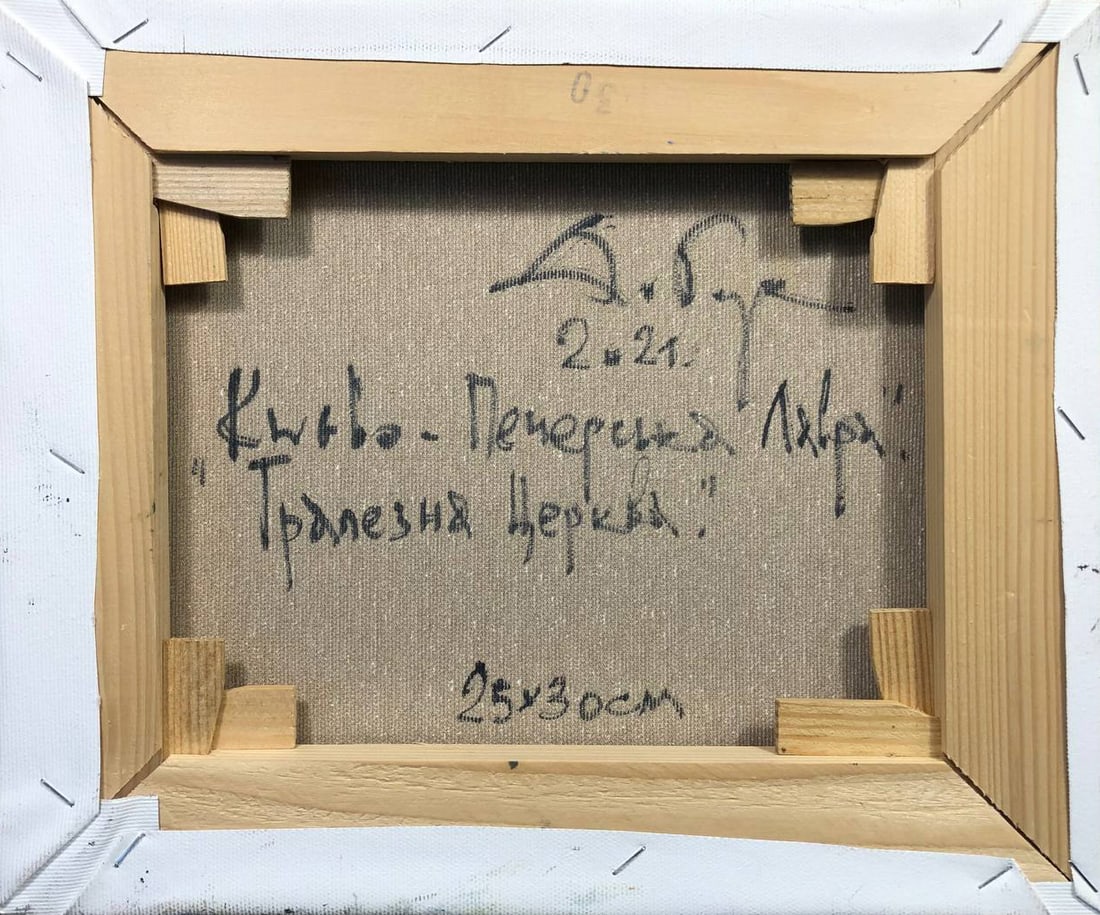 30
2.21г.
Києво-Печерська Лавра".
"Трапезна Церква."
25х30см